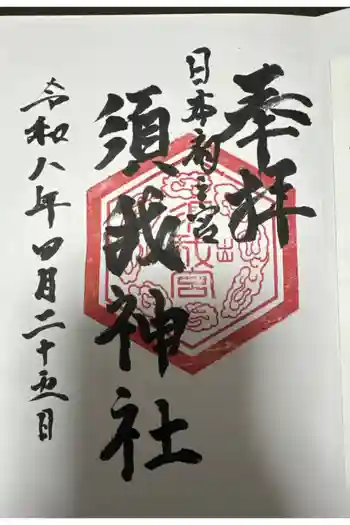 奉拝
日本初之宮
須我神社
令和八年四月二十五日